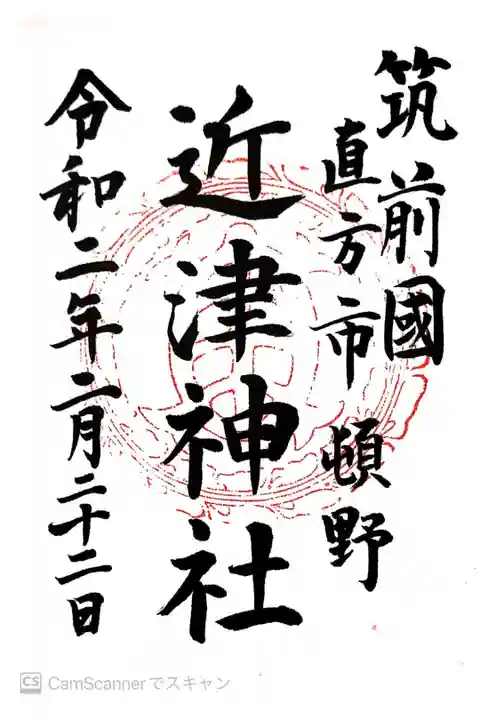 筑前國
直方市 頓野
近津神社
令和二年二月二十二日
CS CamScannerでスキャン